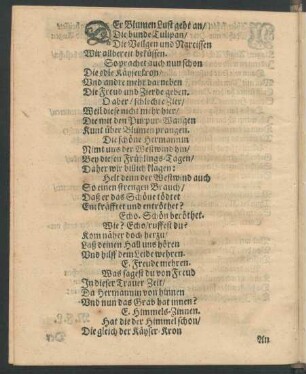 DEr Blumen Lust geht an/
Die bunde Tulipan/
Die Velken und Narcissen
Wir allbereit begüssen.
So prachet auch nun schon
Die edle Käyserkron/
Und andre mehr darneben
Die Freud und Zierde geben.
O aber/ schlechte Zier/
Weil diese nicht mehr hier/
Die mit den Purpur-Wangen
Kunt über Blumen prangen.
Die schöne Hermannin
Nimt uns der Westwind hin/
Bey diesen Frühlings-Tagen/
Daher wir billich klagen:
Helt denn der Westwind auch
So einen strengen Brauch/
Daß er das Schöne tödtet
Entkräfftet und entröthet?
Echo. Schön beröthet.
Wie? Echo/ ruffest du?
Kom näher doch herzu/
Laß deinen Hall uns hören
Und hilff dem Leide wehren.
E. Freude mehren.
Was sagest du von Freud
In dieser Trauer Zeit/
Da Hermannin von hinnen
Und nun das Grab hat innen?
E. Himmels-Zinnen.
Hat die der Himmel schon/
Die gleich der Käyser-Kron
An